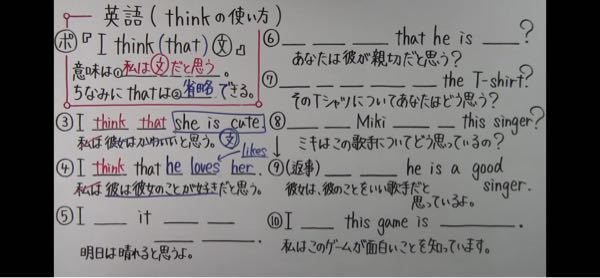 英語(thinkの使い方)
ポ『I think (that) 文』
意味は①私は文だと思う。
ちなみにthatは②省略できる。
③ I think that she is cute.
私は彼女はかわいいと思う。文
likes
④ I think that he loves her.
私は彼は彼女のことが好きだと思う。
⑤ I __ it __ __
__ __.
明日は晴れると思うよ。
⑥ __ __ __ that he is __?
あなたは彼が親切だと思う?
⑦ __ __ __ __ the T-shirt?
そのTシャツについてあなたはどう思う?
⑧ __ __ Miki __ __ this singer?
ミキはこの歌手についてどう思っているの?
⑨(返事) __ __ he is a good
singer.
彼女は、彼のことをいい歌手だと
思っているよ。
⑩ I __ this game is __.
私はこのゲームが面白いことを知っています。